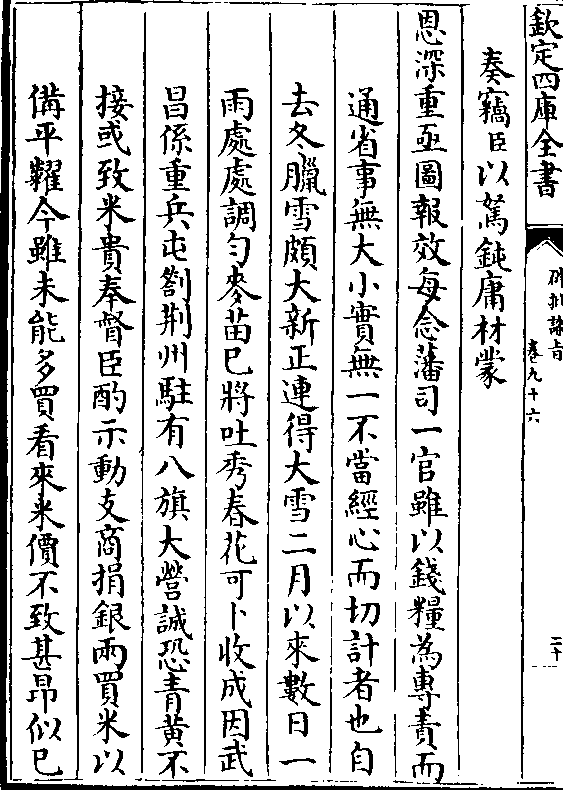 欽定四庫全書
硃批諭旨
卷九十六
二十
奏竊臣以駑鈍庸材蒙
恩深重亟圖報效每念藩司一官雖以錢糧為專責而
通省事無大小實無一不當經心而切計者也自
去冬臘雪頗大新正連得大雪二月以來數日一
雨處處調勻麥苗已將吐秀春花可卜收成因武
昌係重兵屯劄荆州駐有八旗大營誠恐青黃不
接或致米貴奉督臣酌示動支商捐銀兩買米以
備平糶今雖未能多買看來米價不致甚昂似已